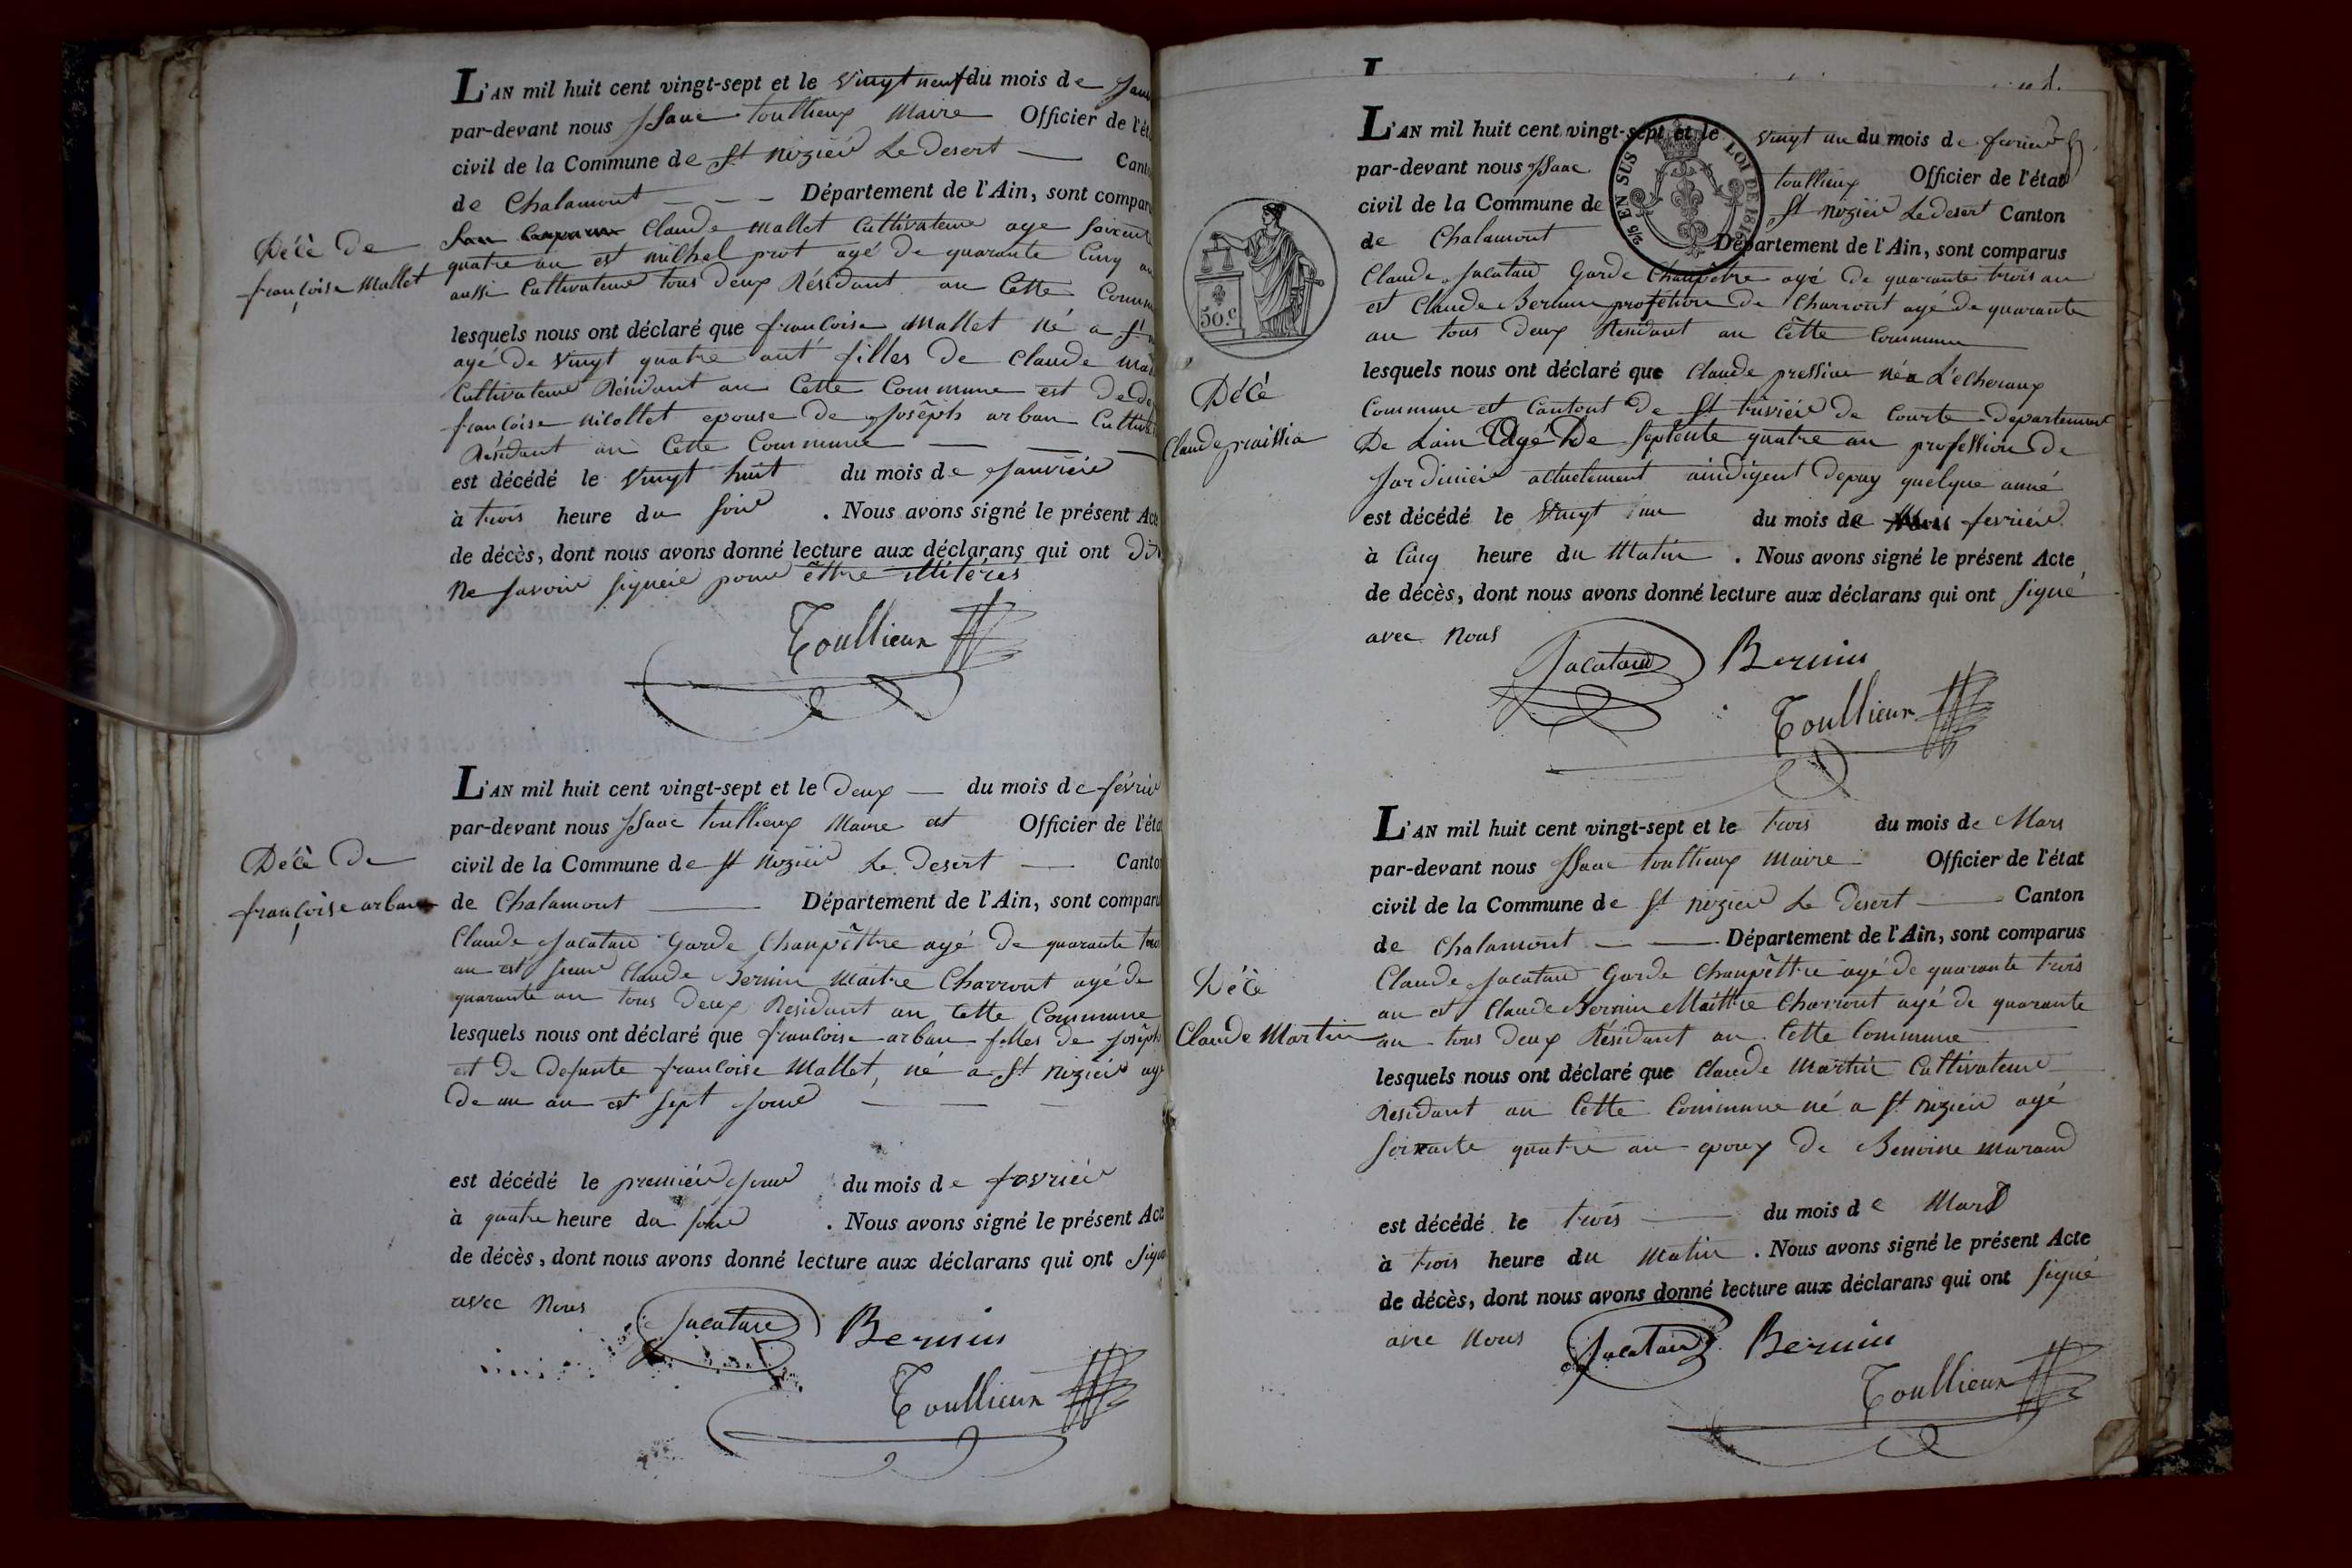 L'AN mil huit cent vingt-sept et le vingt neuf du mois de Janv
par-devant nous Isaac toullieux Maire Officier de l'ét
civil de la Commune de St nizier Le desert — Cant
de Chalamont — — — Département de l'Ain, sont compar
Claude Mallet Cultivateur age soixente
Décè de
françoise Mallet
quatre an est milhel prot agé de quarante Cinq an
aussi Cultivateur tous deux Résidant an Cette Commu
lesquels nous ont déclaré que francoise Mallet né a St
agé de vingt quatre ant filles de Claude mal
Cultivateur Résidant an Cette Commune est de de
francoise nicollet epouse de Josêph arban Cultiv
Résidant an Cette Commune —
est décédé le vingt huit du mois de Janviér
à trois heure du soir . Nous avons signé le présent Acte
de décès, dont nous avons donné lecture aux déclarans qui ont dit
Ne savoir signéir pour êttre illitérés
Toullieux
L'AN mil huit cent vingt-sept et le deux — du mois de févriè
par-devant nous Isaac toullieux Maire et Officier de l'état
Décè De
françoise arban
civil de la Commune de St nizier Le Desert — Canton
de Chalamont — Département de l'Ain, sont comparu
Claude Jacataud Garde Champêttre agé de quarante trois
an et sieur Claude Bernin Maitre Charront agé de
quarante an tous deux Residant an Cette Commune
lesquels nous ont déclaré que francoise arban filles de Josêph
est de defunte francoise Mallet, né a St niziér agé
de un an est sept Jour — — —
est décédé le premiér Jour du mois de fevriér
à quatre heure du soir . Nous avons signé le présent Acte
de décès, dont nous avons donné lecture aux déclarans qui ont signé
avec Nous
Jacataud Bernin
Toullieux
L'AN mil huit cent vingt-sept et le vingt un du mois de fevrier
par-devant nous Isaac toullieux Officier de l'état
civil de la Commune de St niziér Le desert Canton
EN SUS LOI DE 1816
de Chalamont Département de l'Ain, sont comparus
50.c
Claude Jacataud Garde Champêtre agé de quarante trois an
est Claude Bernin profetion de Charront agé de quarante
an tous deux Residant an Cêtte Commune
Décè
Claude praissia
lesquels nous ont déclaré que Claude pression né a L'echeroux
Commune et Cantont de St triviér de Courte departement
De Lain Agé De septente quatre an profession de
Jardiniér actuelement aindigent depuy quelque anné
est décédé le vingt un du mois de fevriér
à Cinq heure du Matin . Nous avons signé le présent Acte
de décès, dont nous avons donné lecture aux déclarans qui ont signé
avec Nous
Jacataud Bernin
Toullieux
L'AN mil huit cent vingt-sept et le trois du mois de Mars
par-devant nous Isaac toullieux Maire Officier de l'état
civil de la Commune de St niziér Le Desert — Canton
de Chalamont — — Département de l'Ain, sont comparus
Décè
Claude Martin
Claude Jacataud Garde Champêttre agé de quarante trois
an et Claude Bernin Maittre Charront agé de quarante
an tous deux Résidant an Cette Commune
lesquels nous ont déclaré que Claude Martin Cultivateur
Residant an Cette Commune né a St niziér agé
soixante quatre an epoux de Benoine Muraud
est décédé le trois — du mois de Mars
à trois heure du Matin . Nous avons signé le présent Acte
de décès, dont nous avons donné lecture aux déclarans qui ont signé
avec Nous
Jacataud Bernin
Toullieux